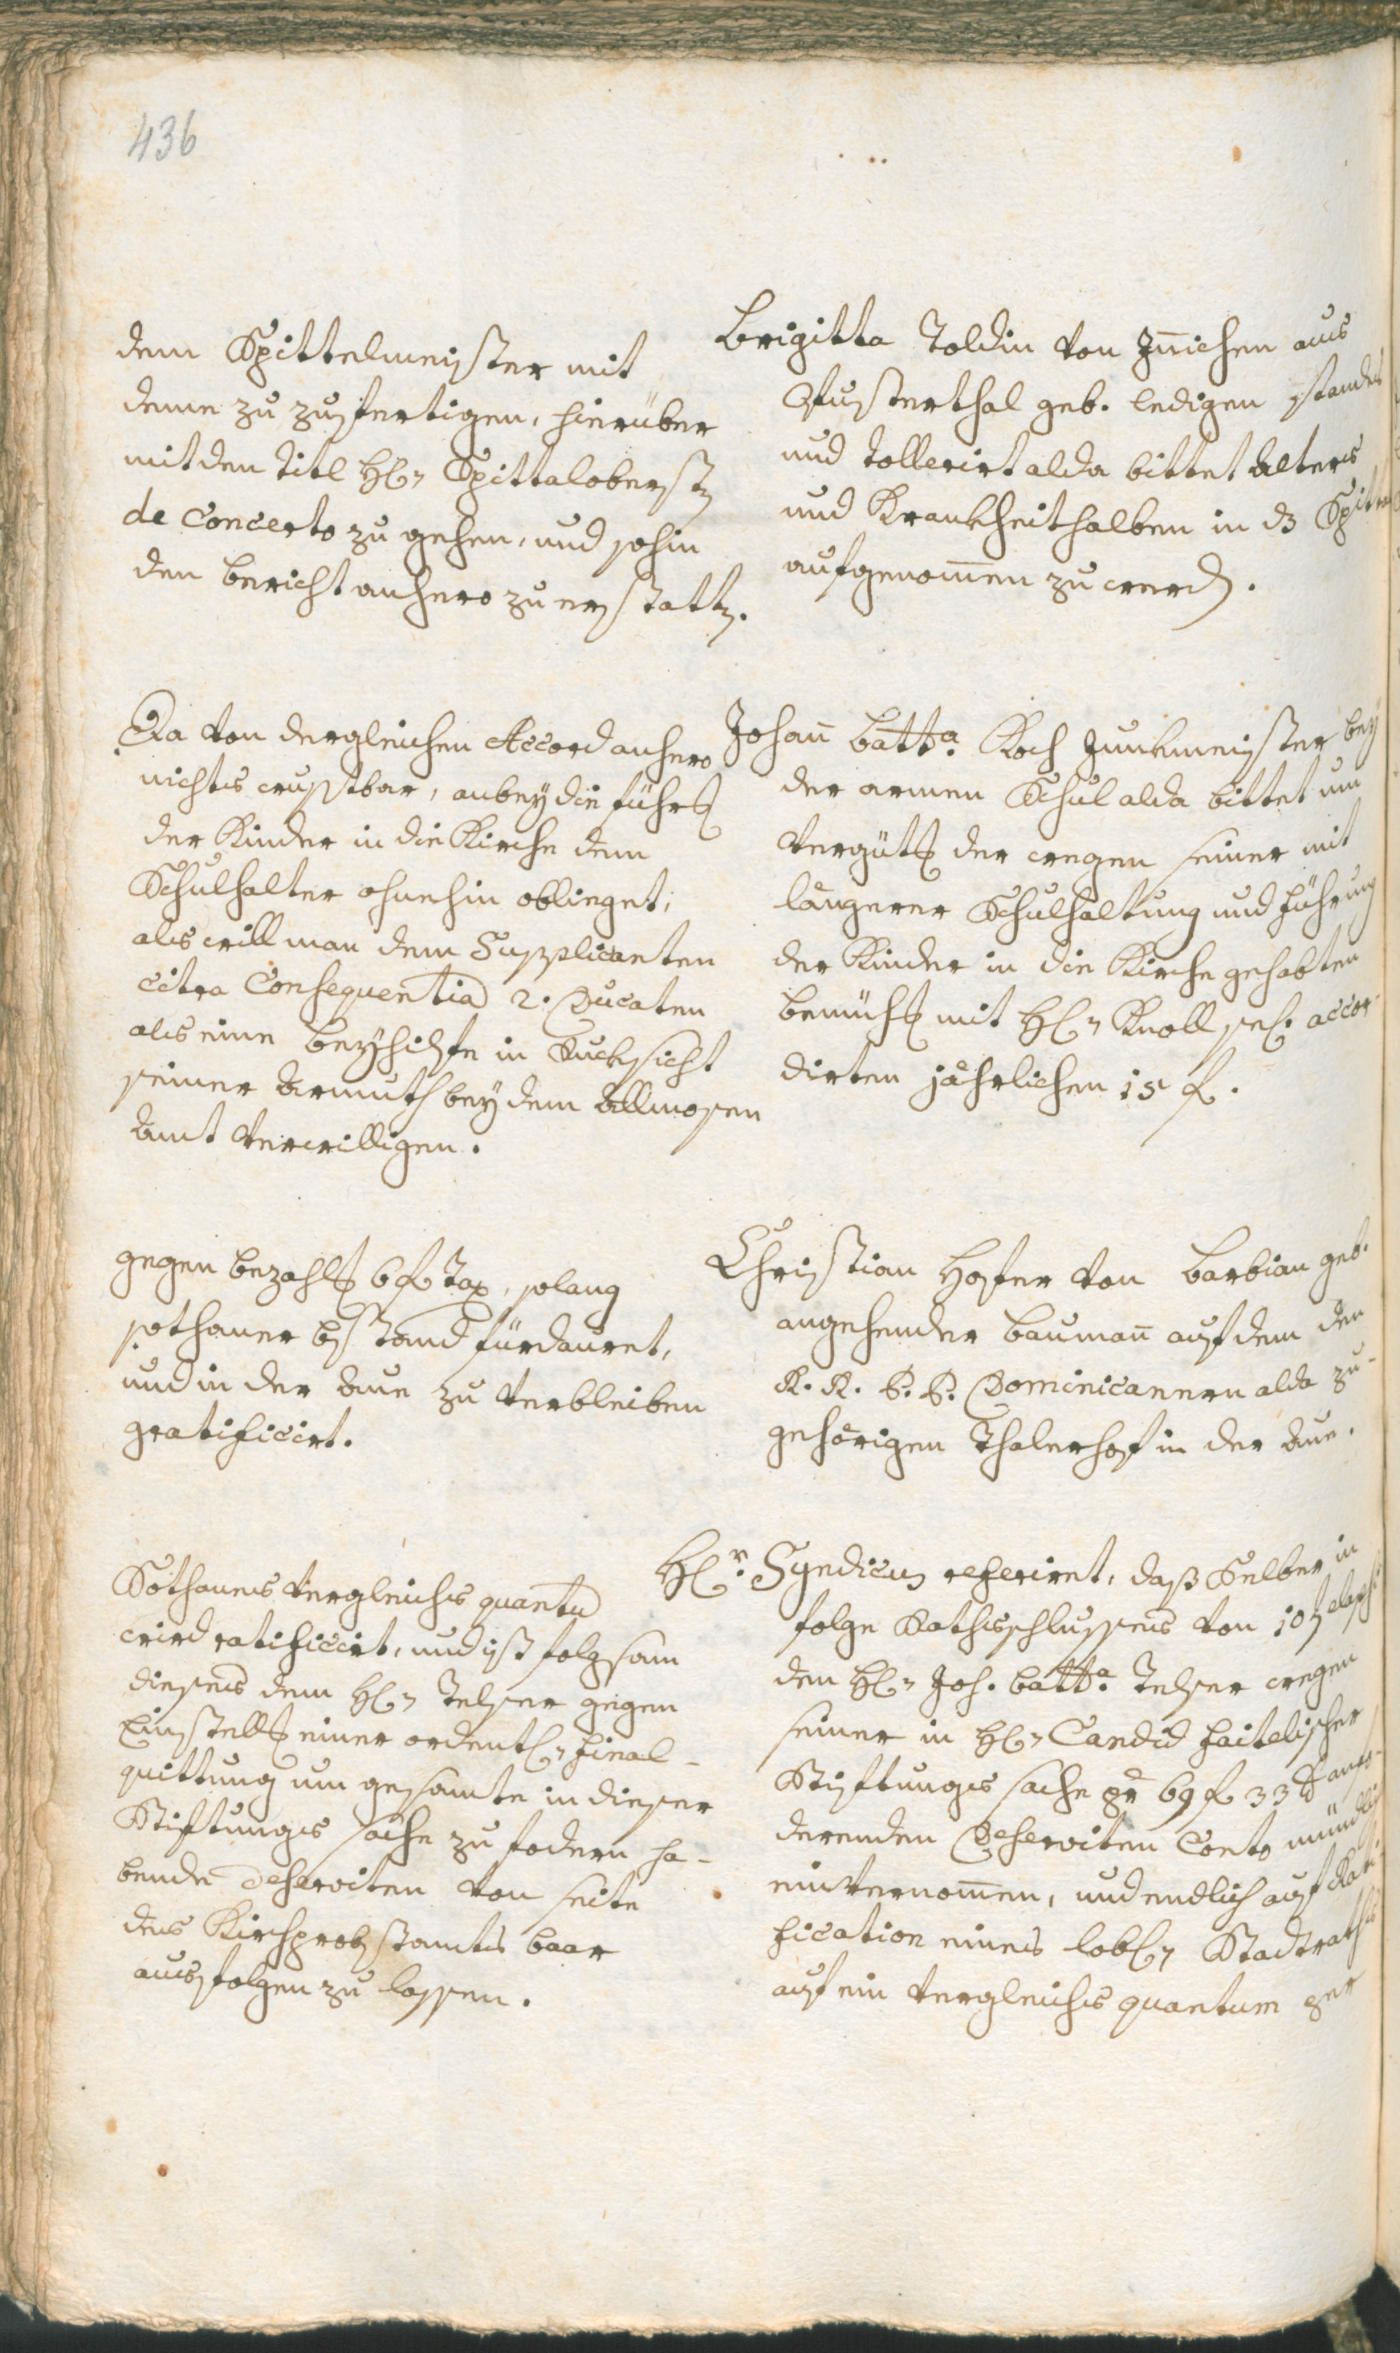 436
dem Spittelmeister mit
deme zu zufertigen, hierüber
mit den Titl H: Spittaloberstn
de Concerto zu gehen, und sohin
den bericht anhero zu erstattn.
Brigitta Toldin von Iñichen aus
Pusterthal geb. ledigen standes
und tollerirt alda bittet Alters
und Krankheit halben in dz Spital
aufgenom̄en zu werdn.
Da von dergleichen Accord anhero
nichts wusstbar, anbey die führg
der Kinder in die Kirche dem
Schulhalter ohnehin oblieget,
als will man dem Supplicanten
citra Consequentia 2. Ducaten
als eine beyhilfe in Rucksicht
seiner Armuth bey dem Allmosen
Amt verwilligen.
Johañ Batta. Koch Junkmeister bey
der armen Schul alda bittet um
vergütg der wegen seiner mit
längerer Schulhaltung und führung
der Kinder in die Kirche gehabten
bemühg mit H: Knoll sel. accor-
dirten jährlichen 15 f.
gegen bezahlg 6 f Tax, solang
sothaner bstand fürdauret,
und in der Aue zu verbleiben
gratificirt.
Christian Hofer von Barbian geb.
angehender Baumañ auf dem den
R. R. P. P. Dominicanern alda zu-
gehörigen Thalerhof in der Aue.
Sothanes vergleichs quantu
wird ratificirt, und ist folgsam
dieses dem H: Telser gegen
Einstellg einer ordentl: final-
quittung um gesamte in dieser
Stiftungs sache zu fodern ha-
bende Deserviten von seite
des Kirchprobstamts baar
ausfolgen zu lassen.
Hr. Syndicus referiret, daß Selber in
folge Rathsschlusses von 10 elapsi
den H: Joh. Batta. Telser wegen
seiner in H: Candid faitelischer
Stiftungs sache pr 69 f 33 x anfo-
derenden Deserviten Conto mündlich
einvernom̄en, und endlich auf Rati-
fication eines lobl: Stadtraths
auf ein vergleichs quantum per